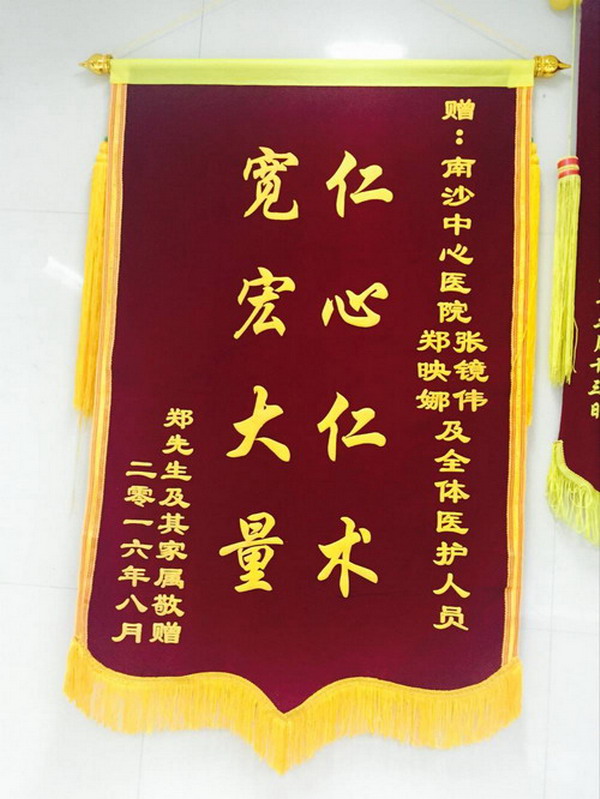 赠：南沙中心医院张镜伟郑映娜及全体医护人员
仁心仁术
宽宏大量
郑先生及其家属敬赠
二零一六年八月